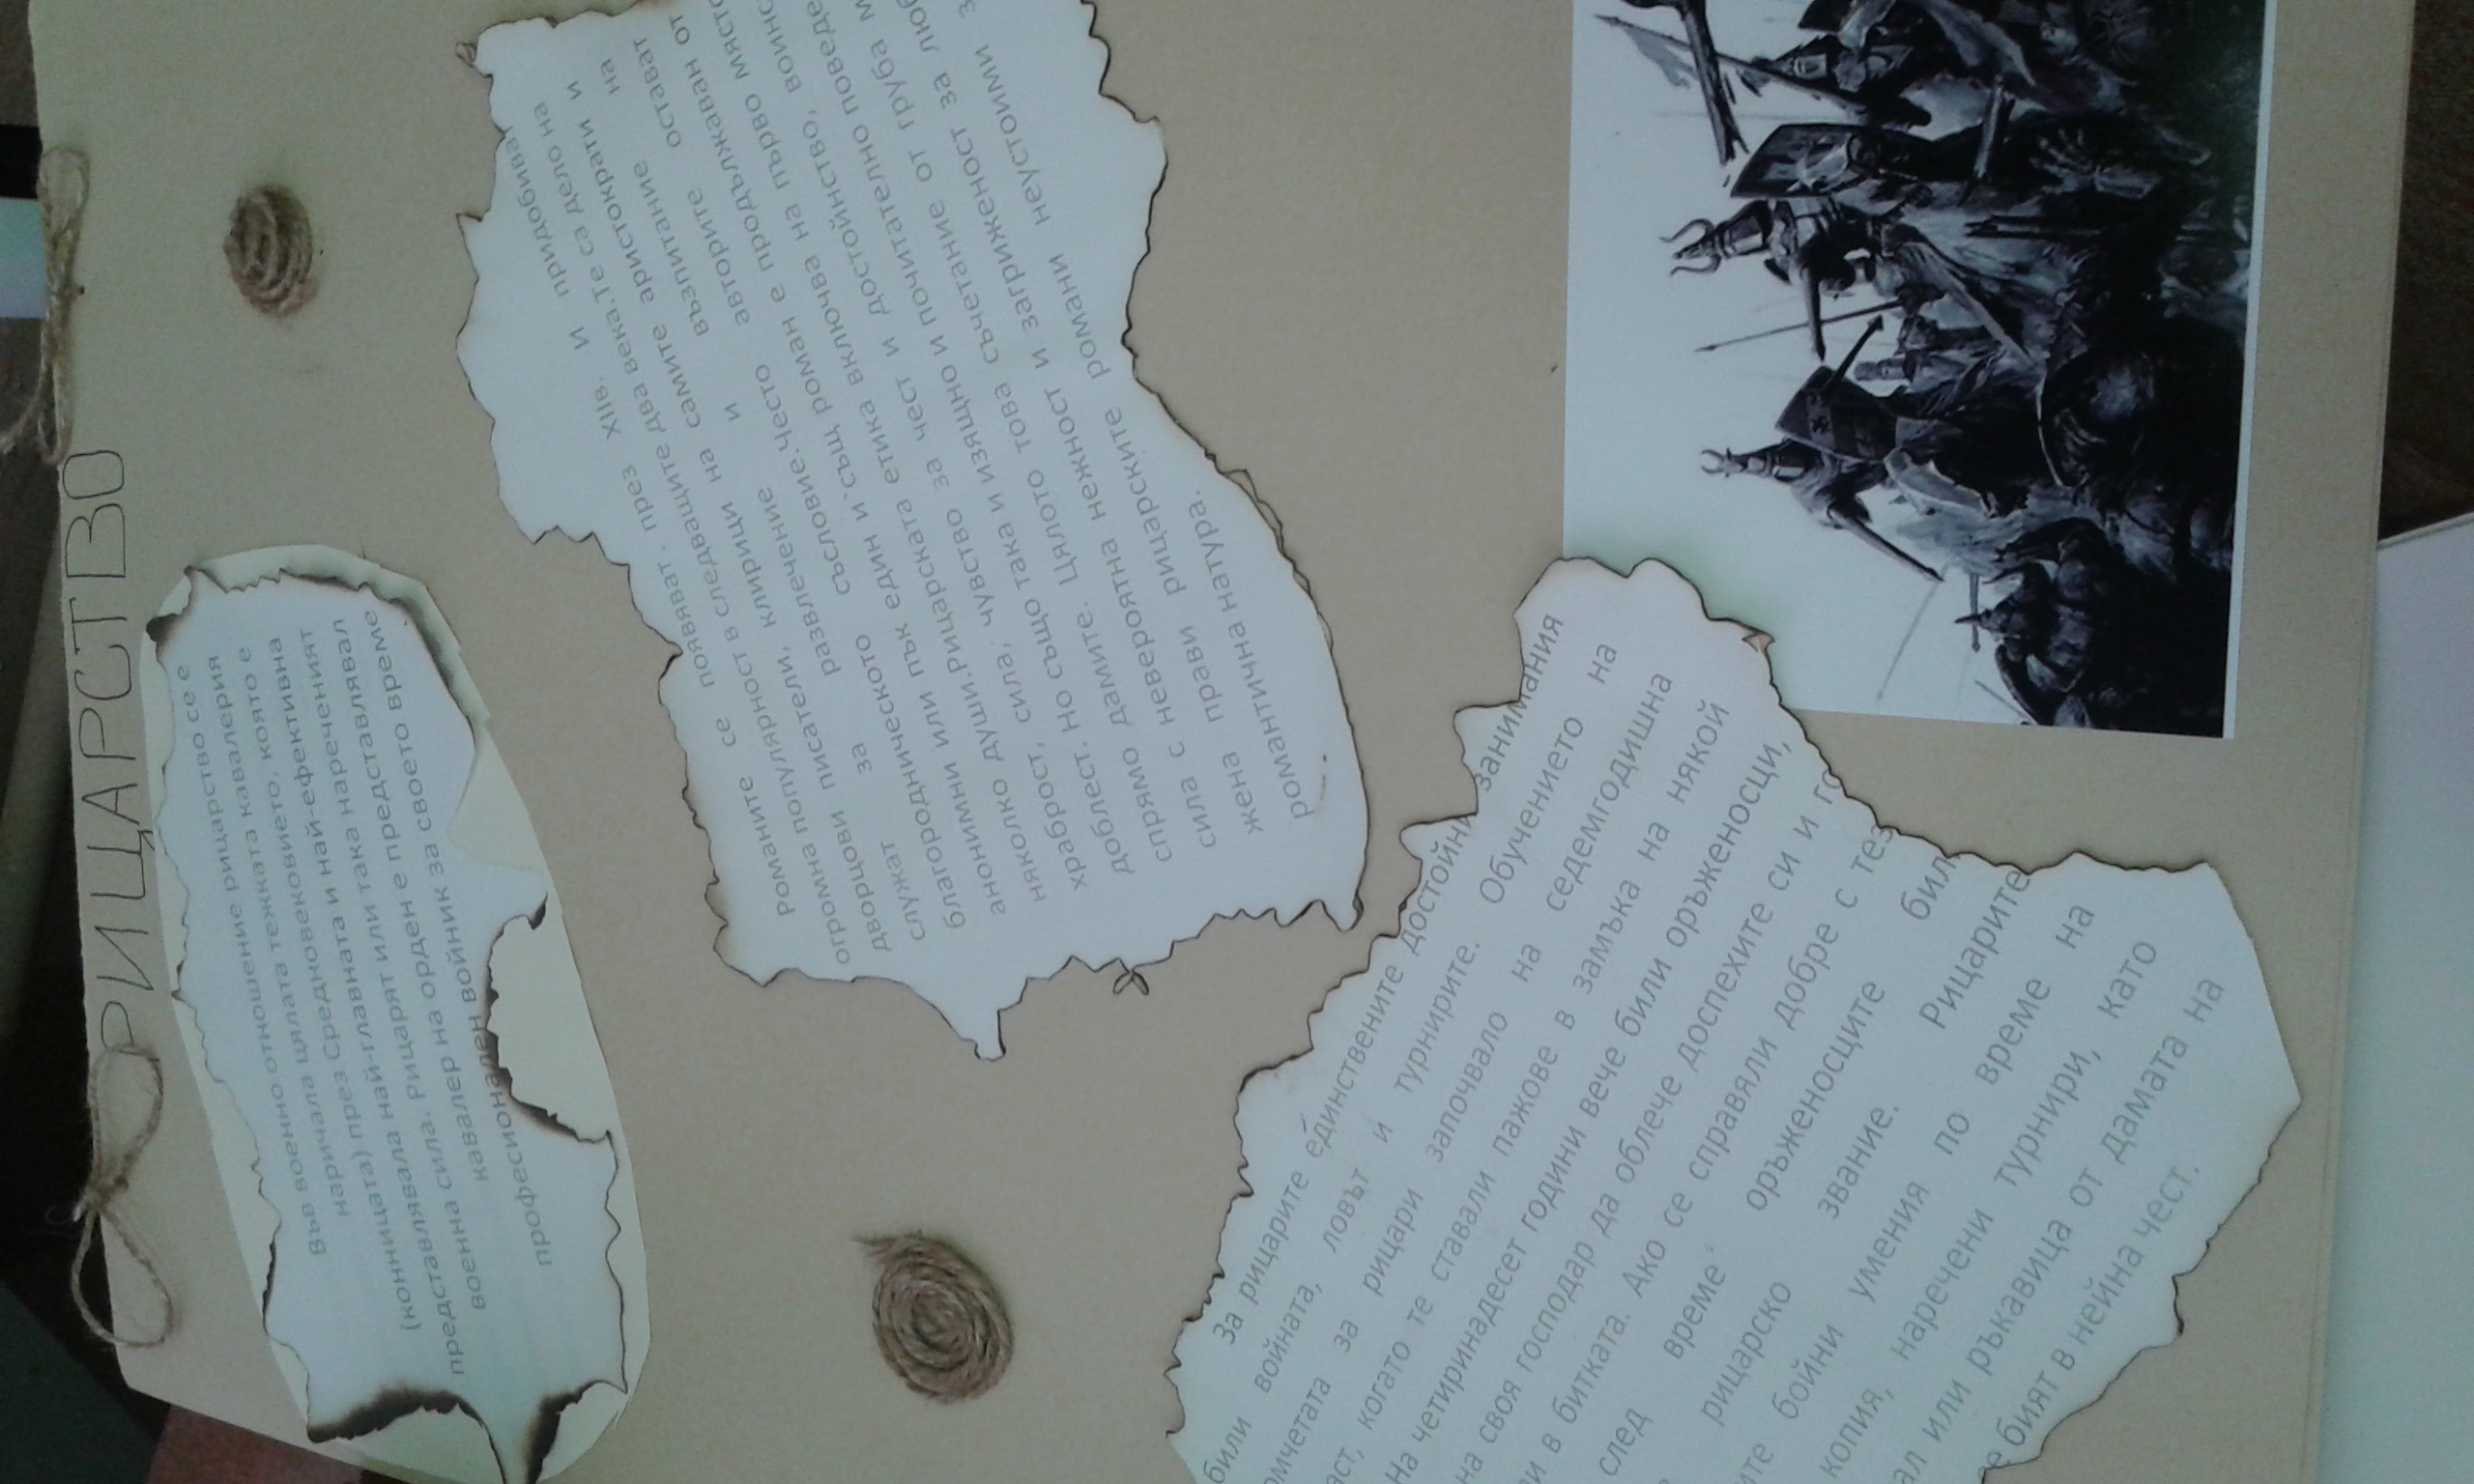 РИЦАРСТВО
Във военно отношение рицарство се е
наричала цялата тежката кавалерия
(конницата) през Средновековието, която е
представлявала най-главната и най-ефективна
военна сила. Рицарят или така нареченият
кавалер на орден е представлявал
професионален войник за своето време
Романите се появяват през XIIв. и придобиват
огромна популярност в следващите два века.Те са дело на
дворцови писатели, клирици на самите аристократи и
служат за развлечение и възпитание на
благородническото съсловие.често авторите остават
анонимни или пък един и същ роман е продължаван от
няколко души.Рицарската етика включва на първо място
храброст, сила, чувство за чест и достойнство,
доблест. Но също така и изящно и почитателно
спрямо дамите. Цялото това съчетание от груба
сила с невероятна нежност и загриженост за
жена прави рицарските романи неустоими з
романтична натура.
За рицарите единствените достойни занимания
били войната, ловът и турнирите. Обучението на
за рицари започвало на седемгодишна
когато те ставали пажове в замъка на някой
На четиринадесет години вече били оръженосци,
на своя господар да облече доспехите си и
в битката. Ако се справяли добре с тез
след време оръженосците
рицарско звание. Рицарите
бойни умения по време на
копия, наречени турнири, като
или ръкавица от дамата на
бият в нейна чест.